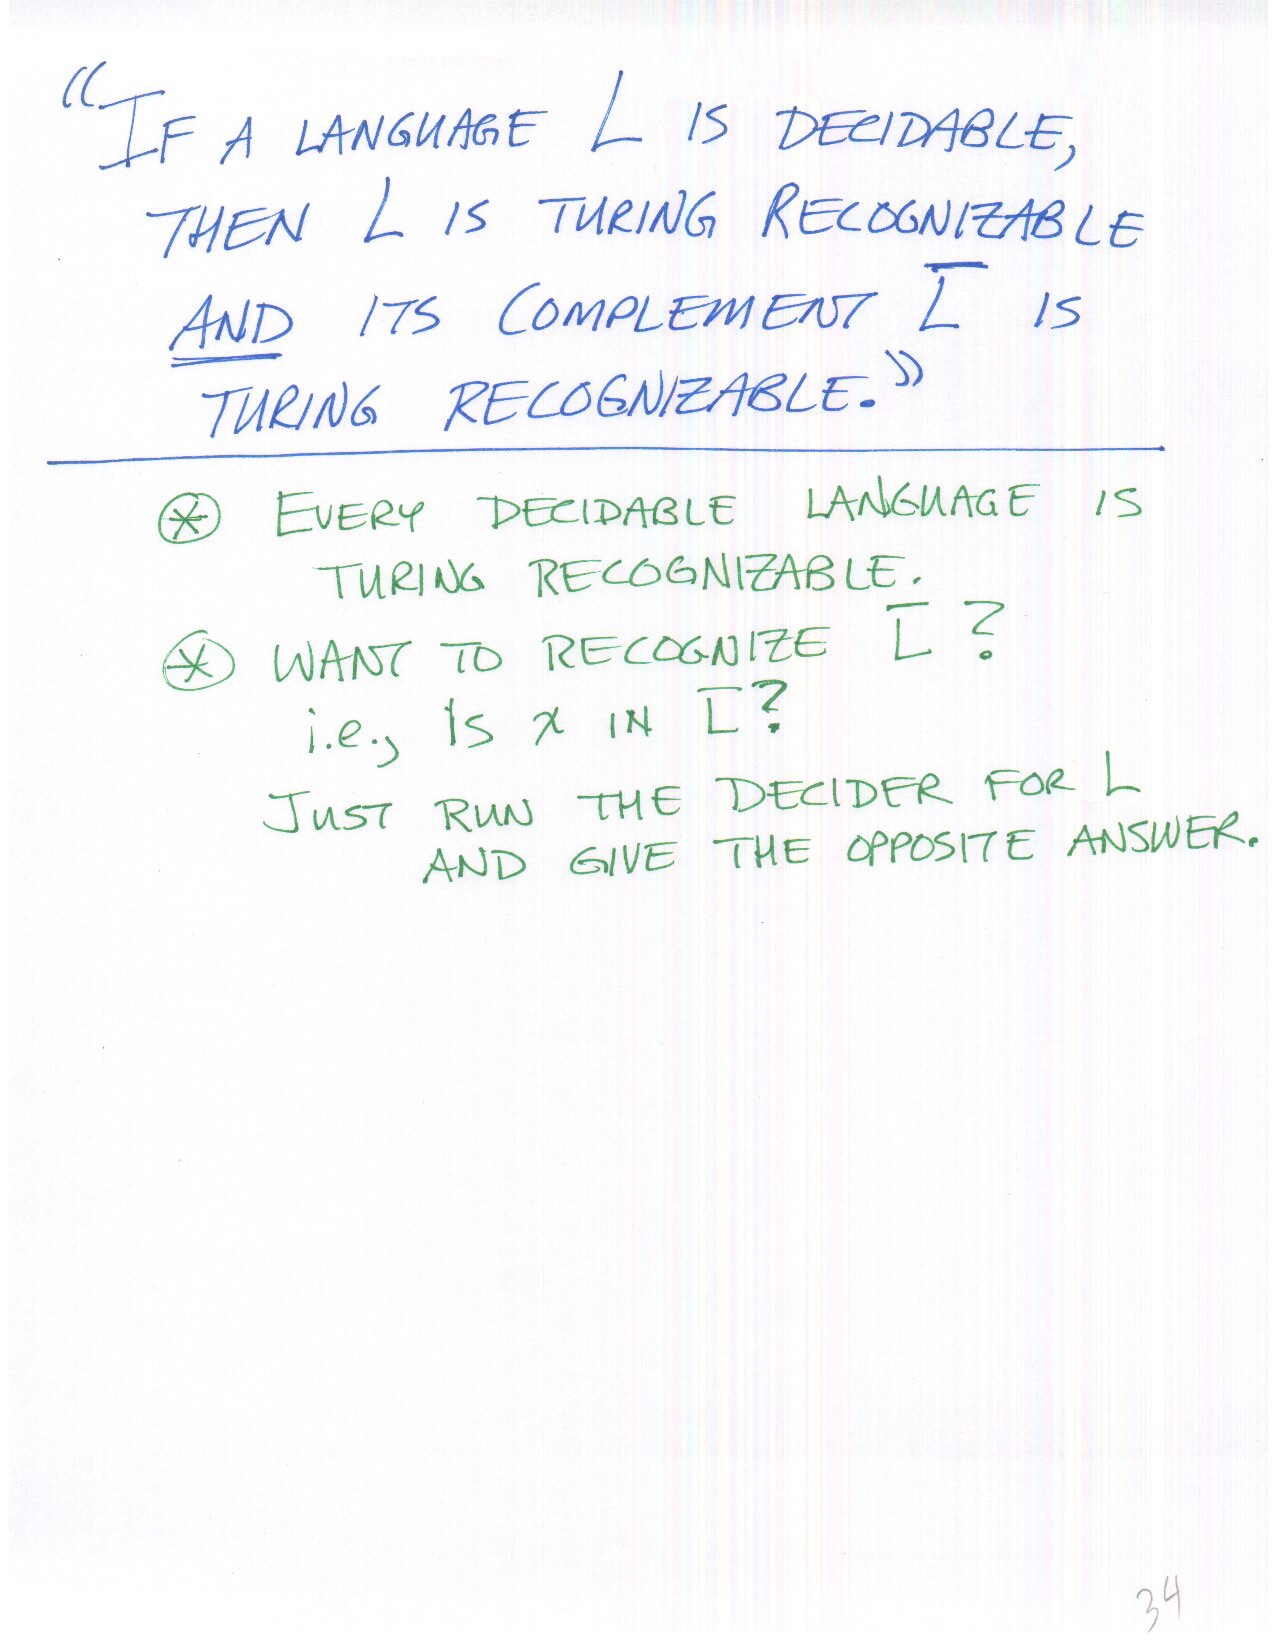 “IF A LANGUAGE L IS DECIDABLE,
THEN L IS TURING RECOGNIZABLE
AND ITS COMPLEMENT L̅ IS
TURING RECOGNIZABLE.”
⊛ EVERY DECIDABLE LANGUAGE IS
TURING RECOGNIZABLE.
⊛ WANT TO RECOGNIZE L̅?
i.e., IS x IN L̅?
JUST RUN THE DECIDER FOR L
AND GIVE THE OPPOSITE ANSWER.
34